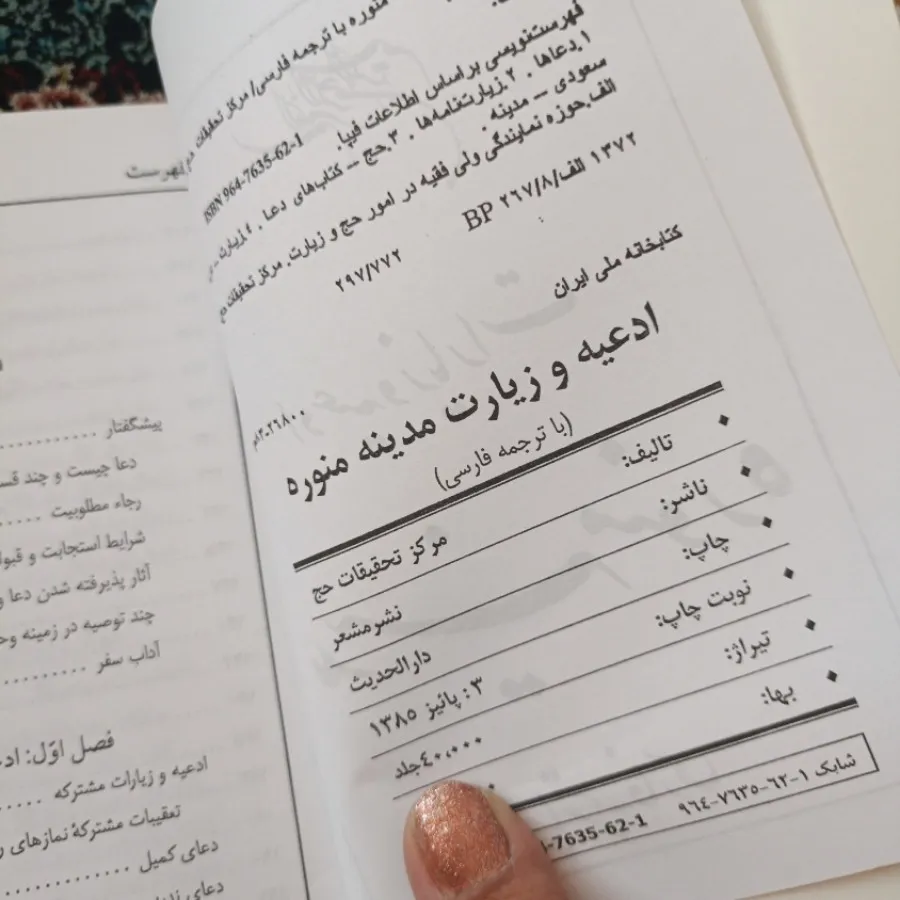 منوره با ترجمه فارسی/ مرکز تحقیقات
ISBN 964-7635-62-1
فهرست‌نویسی براساس اطلاعات فیپا.
۱.دعاها. ۲.زیارت‌نامه‌ها. ۳.حج -- کتاب‌های دعا. ۴.زیارت
سعودی -- مدینه.
الف.حوزه نمایندگی ولی فقیه در امور حج و زیارت. مرکز تحقیقات
۱۳۷۲ الف/۸/۲۶۷ BP
۲۹۷/۷۷۲
کتابخانه ملی ایران
ادعیه و زیارت مدینه منوره
(با ترجمه فارسی)
تالیف:
مرکز تحقیقات حج
ناشر:
نشر مشعر
چاپ:
دارالحدیث
نوبت چاپ:
۳: پائیز ۱۳۸۵
تیراژ:
۴۰،۰۰۰جلد
بها:
شابک ۱-۶۲-۷۶۳۵-۹۶۴
-7635-62-1
فهرست
پیشگفتار
دعا چیست و چند
رجاء مطلوبیت
شرایط استجابت و
آثار پذیرفته شدن دعا و
چند توصیه در زمینه
آداب سفر
فصل اوّل:
ادعیه و زیارات مشترکه
تعقیبات مشترکهٔ نمازهای
دعای کمیل
دعای